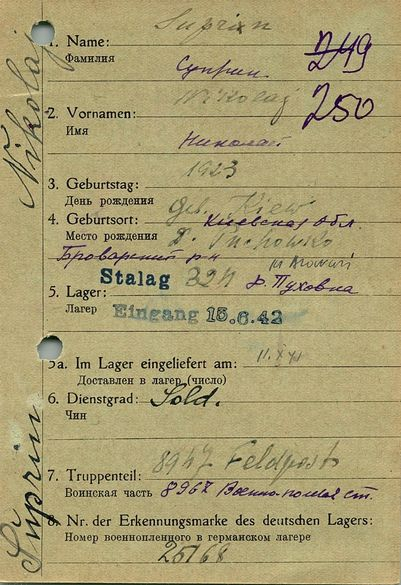 Suprin
1. Name:
Фамилия
Суприн
249
250
Nikolaj
2. Vornamen:
Имя
Николай
1923
3. Geburtstag:
День рождения
Geb. Kiew
4. Geburtsort: Киевская обл.
Место рождения D. Puchowko
Броварский р-н
Stalag 324 д. Пуховка
5. Lager:
Лагер
Eingang 15.6.42
5a. Im Lager eingeliefert am: 11.X 41
Доставлен в лагер (число)
6. Dienstgrad: Sold.
Чин
8947 Feldpost
7. Truppenteil:
Воинская часть 8967 Военно-полевая ст.
8. Nr. der Erkennungsmarke des deutschen Lagers:
Номер военнопленного в германском лагере
26168
Suprin Nikolaj